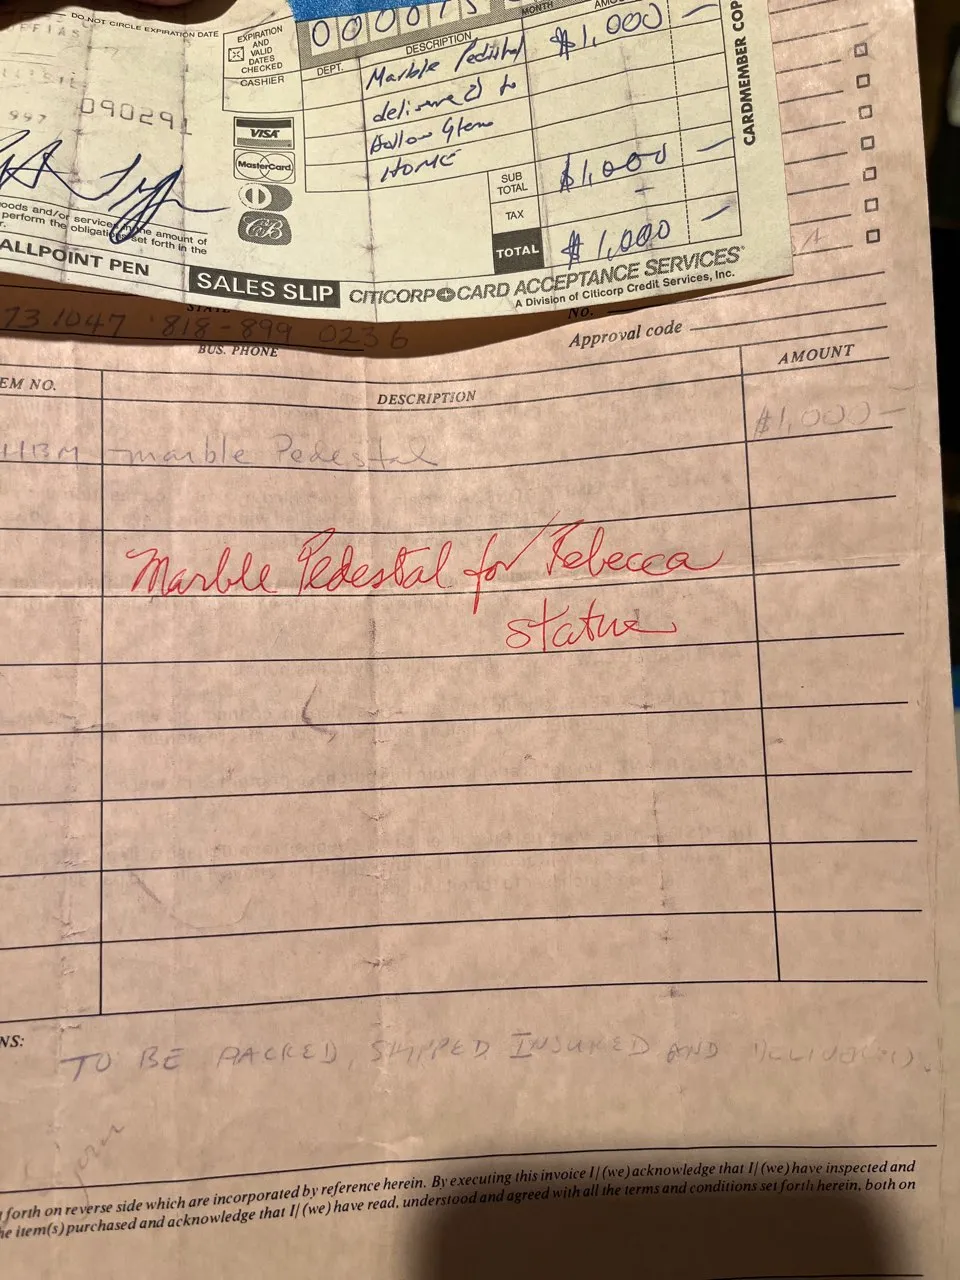 DO NOT CIRCLE EXPIRATION DATE
EXPIRATION
AND
VALID
DATES
CHECKED
CASHIER
MONTH
DEPT.
DESCRIPTION
Marble Pedistal $1,000 —
delivered to
HOME
090291
997
VISA
MasterCard
CB
SUB
TOTAL
$1,000 —
TAX
—
TOTAL
$1,000 —
CARDMEMBER COP
oods and/or services in the amount of
perform the obligations set forth in the
ALLPOINT PEN
SALES SLIP
CITICORP CARD ACCEPTANCE SERVICES
A Division of Citicorp Credit Services, Inc.
STATE
No.
731047 818-899 0236
BUS. PHONE
Approval code
EM NO.
DESCRIPTION
AMOUNT
HBM marble Pedestal $1,000—
Marble Pedestal for Rebecca
statue
NS:
TO BE PACKED, SHIPPED INSURED AND DELIVERED.
forth on reverse side which are incorporated by reference herein. By executing this invoice I/(we) acknowledge that I/(we) have inspected and
he item(s) purchased and acknowledge that I/(we) have read, understood and agreed with all the terms and conditions set forth herein, both on